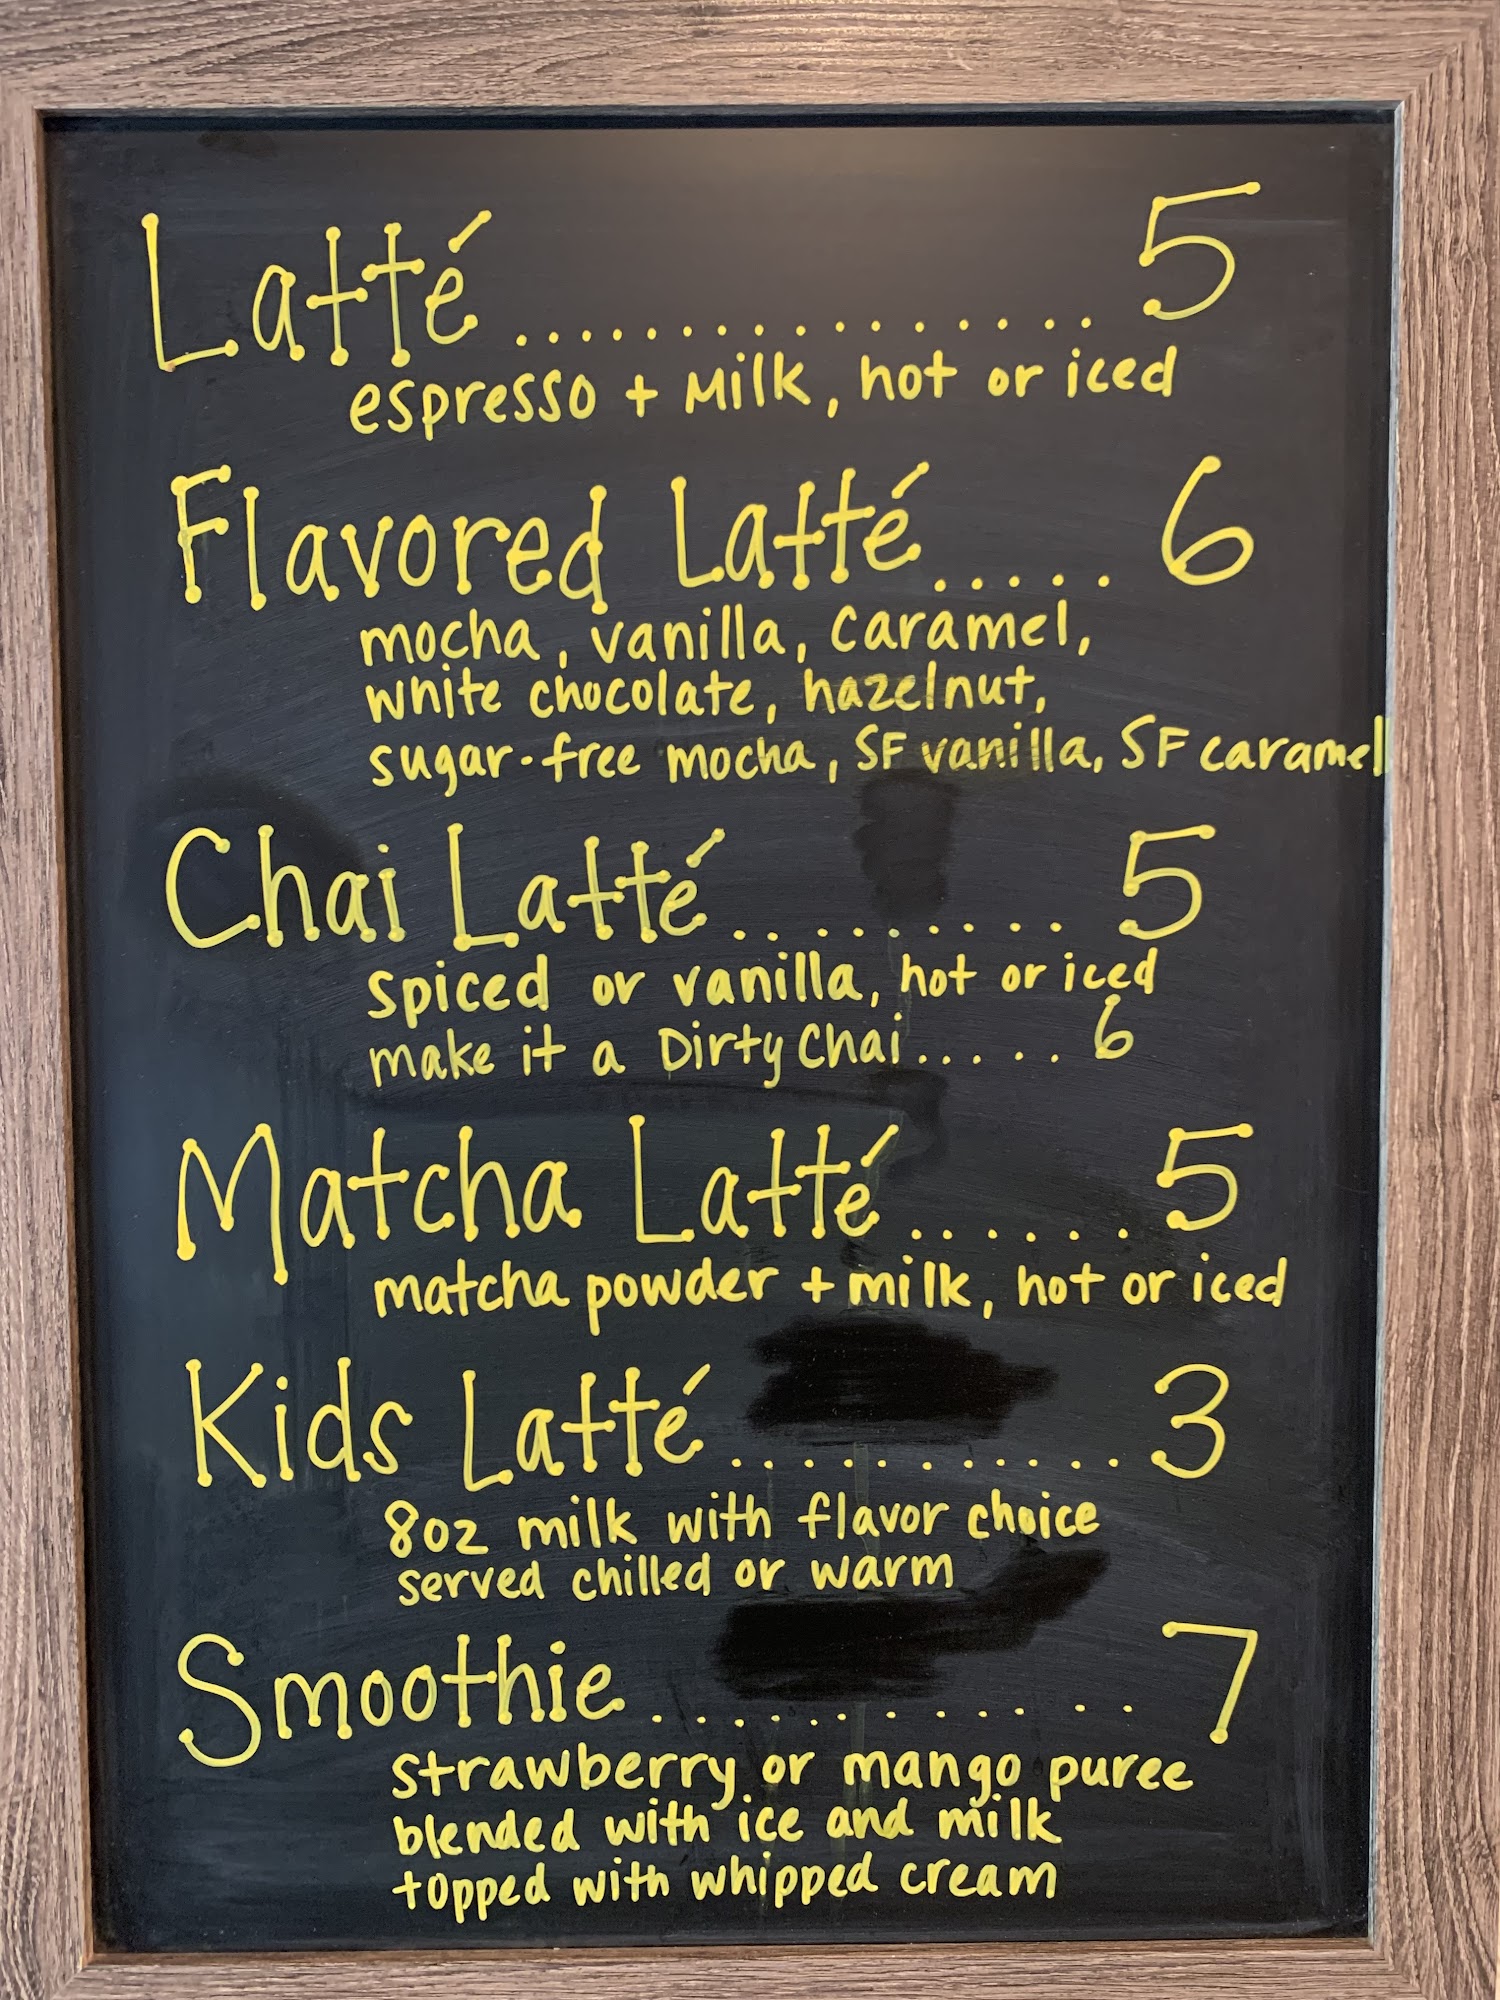 Latté ................. 5
espresso + Milk, hot or iced
Flavored Latté ..... 6
mocha, vanilla, caramel,
white chocolate, hazelnut,
sugar-free mocha, SF vanilla, SF caramel
Chai Latté ......... 5
spiced or vanilla, hot or iced
make it a Dirty Chai ..... 6
Matcha Latté ...... 5
matcha powder + milk, hot or iced
Kids Latté ............ 3
8oz milk with flavor choice
served chilled or warm
Smoothie ............. 7
strawberry or mango puree
blended with ice and milk
topped with whipped cream